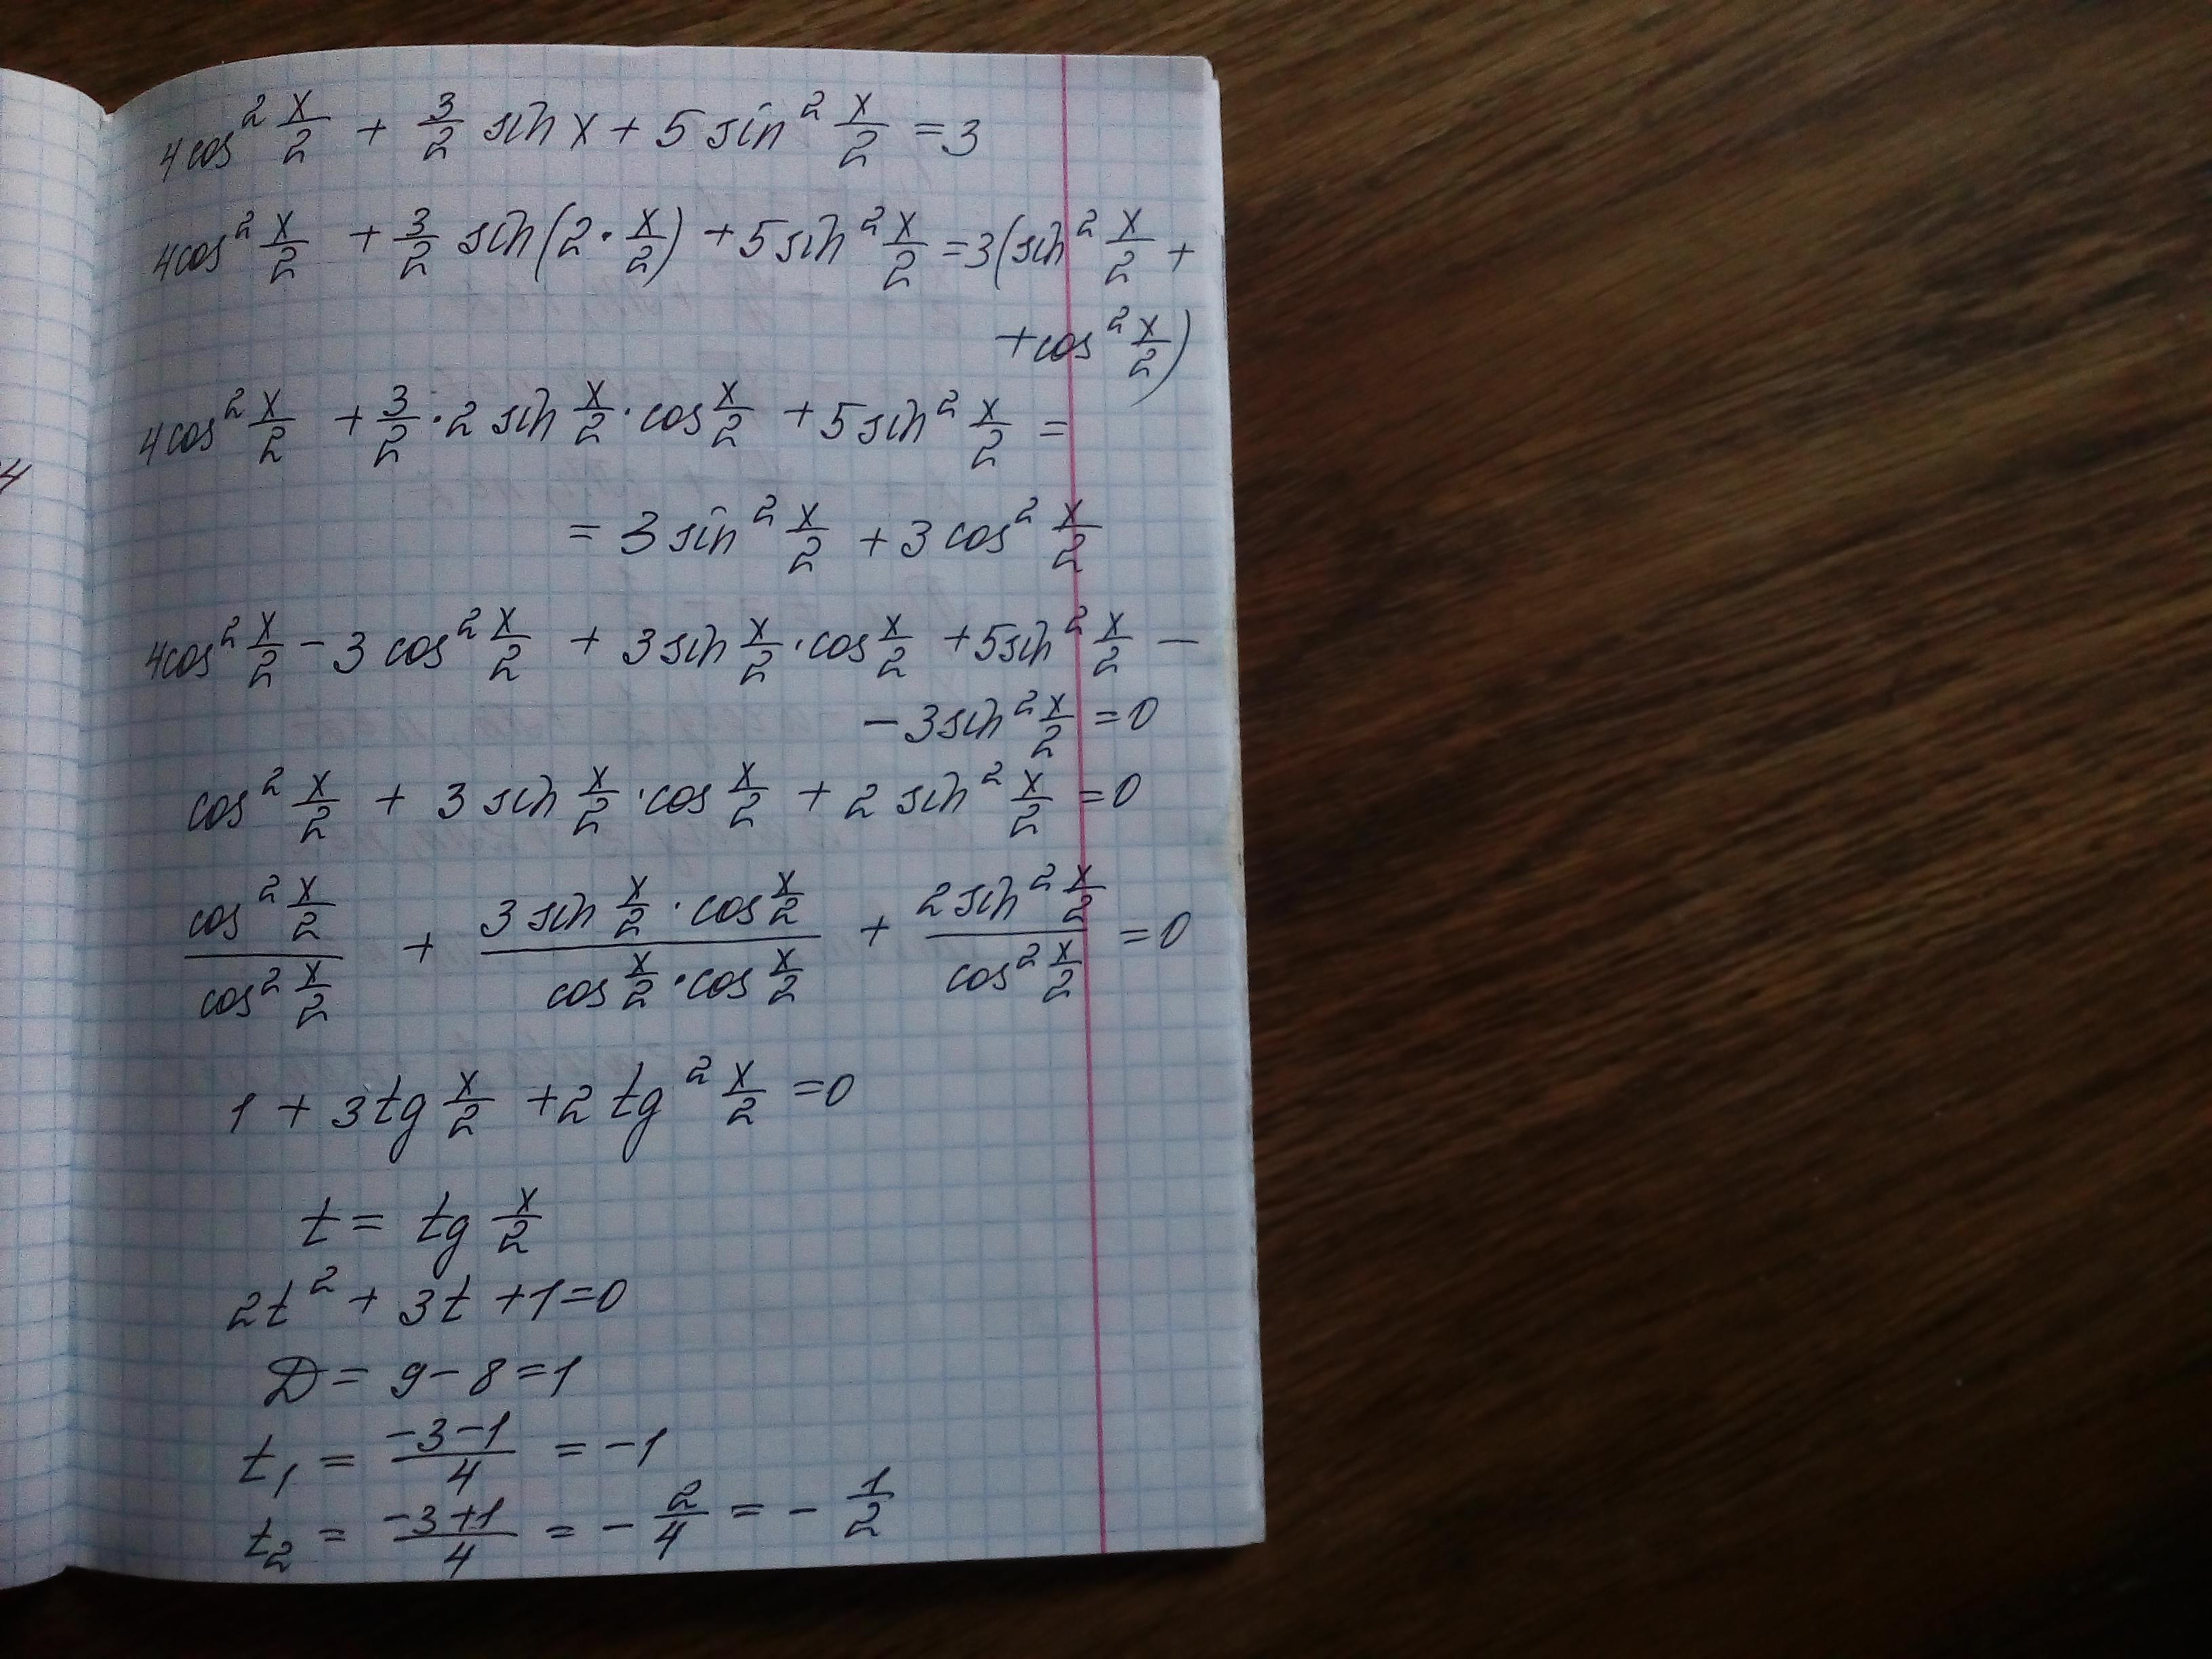 4cos² x/2 + 3/2 sin x + 5 sin² x/2 = 3
4cos² x/2 + 3/2 sin(2 · x/2) + 5 sin² x/2 = 3(sin² x/2 +
+ cos² x/2)
4cos² x/2 + 3/2 · 2 sin x/2 · cos x/2 + 5 sin² x/2 =
4
= 3 sin² x/2 + 3 cos² x/2
4cos² x/2 − 3 cos² x/2 + 3 sin x/2 · cos x/2 + 5 sin² x/2 −
− 3 sin² x/2 = 0
cos² x/2 + 3 sin x/2 · cos x/2 + 2 sin² x/2 = 0
(cos² x/2)/(cos² x/2) + (3 sin x/2 · cos x/2)/(cos x/2 · cos x/2) + (2 sin² x/2)/(cos² x/2) = 0
1 + 3 tg x/2 + 2 tg² x/2 = 0
t = tg x/2
2t² + 3t + 1 = 0
D = 9 − 8 = 1
t₁ = (−3−1)/4 = −1
t₂ = (−3+1)/4 = − 2/4 = − 1/2